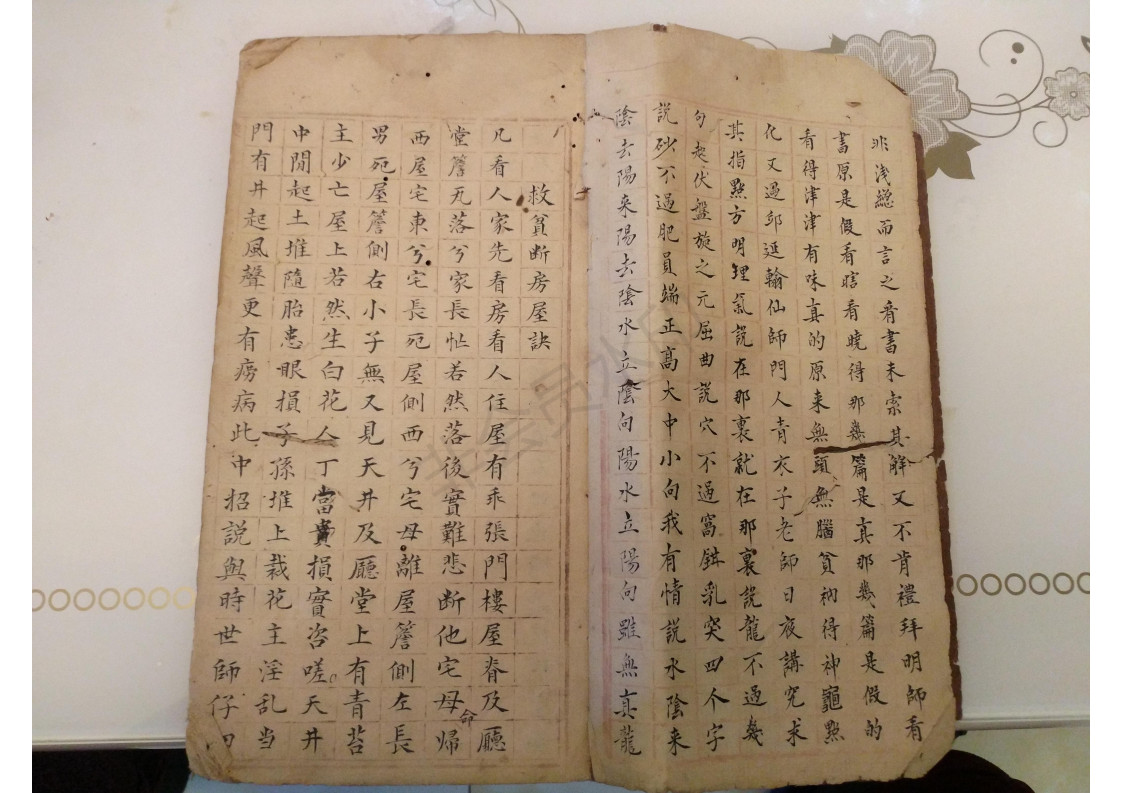 非浅總而言之看書未索其解又不肯禮拜明師看
書原是假看瞎看曉得那幾篇是真那幾篇是假的
看得津津有味真的原来無頭無腦貧衲得神龜點
化又過邱延翰仙師門人青衣子老師日夜講究求
其指點方明理氣説在那裏就在那裏説龍不過幾
句起伏盤旋之元屈曲説穴不過窩鉗乳突四个字
説砂不過肥員端正高大中小向我有情説水陰来
陰去陽来陽去陰水立陰向陽水立陽向雖無真龍
救貧断房屋訣
凡看人家先看房看人住屋有乖張門樓屋脊及廳
堂簷瓦落兮家長怔若然落後實難悲断他宅母命歸
西屋宅東兮宅長宛屋側西兮宅母離屋簷側左長
男宛屋簷側右小子無又見天井及廳堂上有青苔
主少亡屋上若然生白花人丁當貴損實咨嗟天井
中間起土堆隨胎患眼損子孫堆上栽花主淫乱当
門有井起風聲更有癆病此中招説與時世師仔